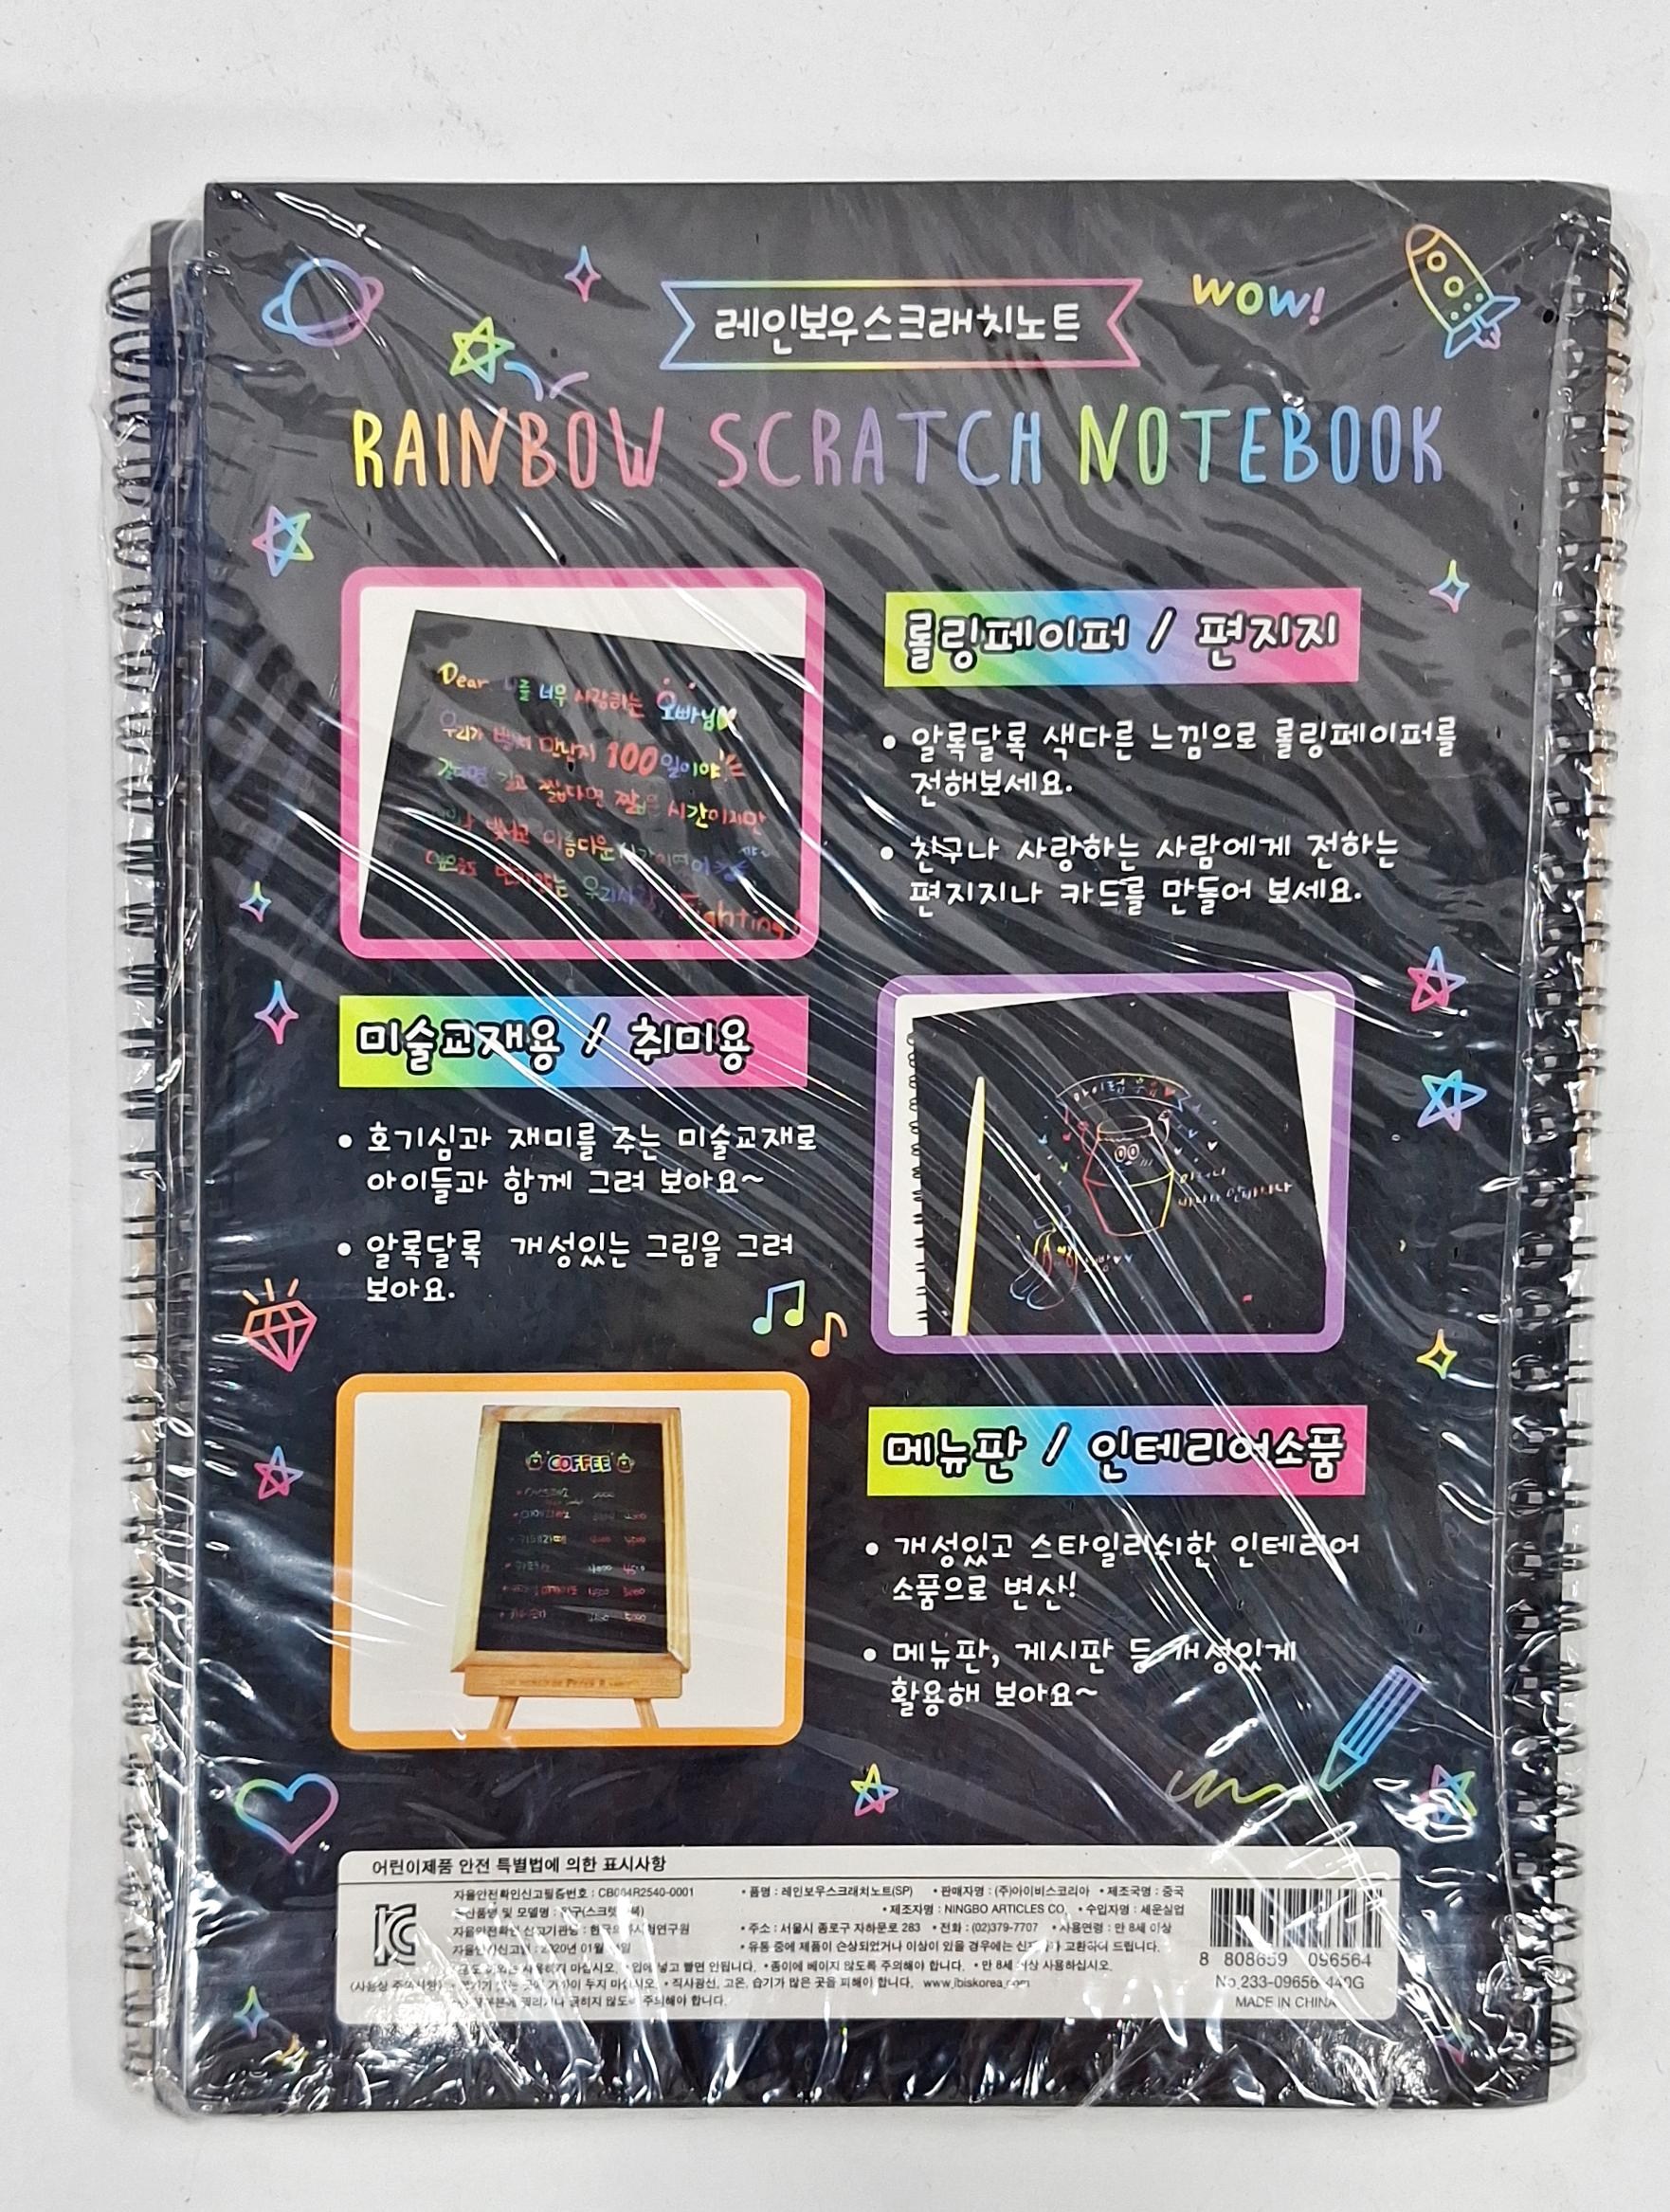 레인보우스크래치노트
wow!
RAINBOW SCRATCH NOTEBOOK
Dear 너무 사랑하는 오빠님
우리가 벌써 만난지 100일이야
길고 짧다면 짧은 시간이지만
아름다운
Fighting!
롤링페이퍼 / 편지지
• 알록달록 색다른 느낌으로 롤링페이퍼를
전해보세요.
• 친구나 사랑하는 사람에게 전하는
편지지나 카드를 만들어 보세요.
미술교재용 / 취미용
• 호기심과 재미를 주는 미술교재로
아이들과 함께 그려 보아요~
• 알록달록 개성있는 그림을 그려
보아요.
COFFEE
메뉴판 / 인테리어소품
• 개성있고 스타일리쉬한 인테리어
소품으로 변산!
• 메뉴판, 게시판 등 개성있게
활용해 보아요~
어린이제품 안전 특별법에 의한 표시사항
자율안전확인신고필증번호 : CB064R2540-0001
• 품명 : 레인보우스크래치노트(SP) • 판매자명 : (주)아이비스코리아 • 제조국명 : 중국
및 모델명 :
• 제조자명 : NINGBO ARTICLES CO. • 수입자명 : 세운실업
자율안전확인 신고기관명 :
• 주소 : 서울시 종로구 자하문로 283 • 전화 : (02)379-7707 • 사용연령 : 만 8세 이상
2020년 01월
• 유통 중에 제품이 손상되었거나 이상이 있을 경우에는 교환하여 드립니다.
사용하지 마십시오. • 입에 넣고 빨면 안됩니다. • 종이에 베이지 않도록 주의해야 합니다. • 만 8세 이상 사용하십시오.
두지 마십시오. • 직사광선, 고온, 습기가 많은 곳을 피해야 합니다. www.ibiskorea.com
않도록 주의해야 합니다.
8 808659 096564
No.233-09656-440G
MADE IN CHINA